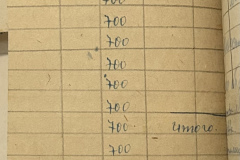 700
700
700
700
700
700
700 итого.
700